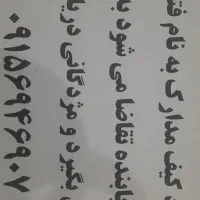 کیف مدارک به نام
یابنده تقاضا می شود
بگیرد و مژدگانی
۰۹۱۵۶۹۴۶۹۰۷